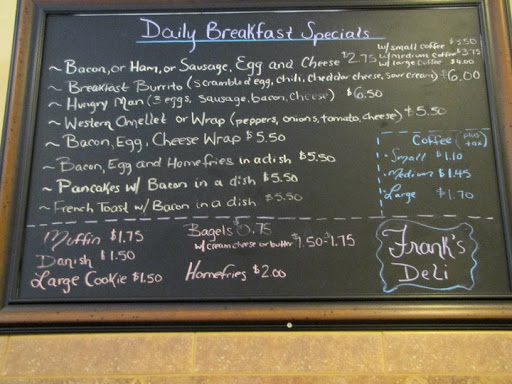 Daily Breakfast Specials
w/small coffee $3.50
w/medium coffee $3.75
w/large coffee $4.00
~ Bacon, or Ham, or Sausage, Egg and Cheese $2.75
~ Breakfast Burrito (scrambled egg, chili, cheddar cheese, sour cream) $6.00
~ Hungry Man (3 eggs, sausage, bacon, cheese) $6.50
~ Western Omellet or Wrap (peppers, onions, tomato, cheese) $5.50
~ Bacon, Egg, Cheese Wrap $5.50
~ Bacon, Egg and Homefries in a dish $5.50
~ Pancakes w/ Bacon in a dish $5.50
~ French Toast w/ Bacon in a dish $5.50
Coffee (plus tax)
· Small $1.10
· Medium $1.45
· Large $1.70
Muffin $1.75
Danish $1.50
Large Cookie $1.50
Bagels $0.75
w/cream cheese or butter $1.50-$1.75
Homefries $2.00
Frank's
Deli